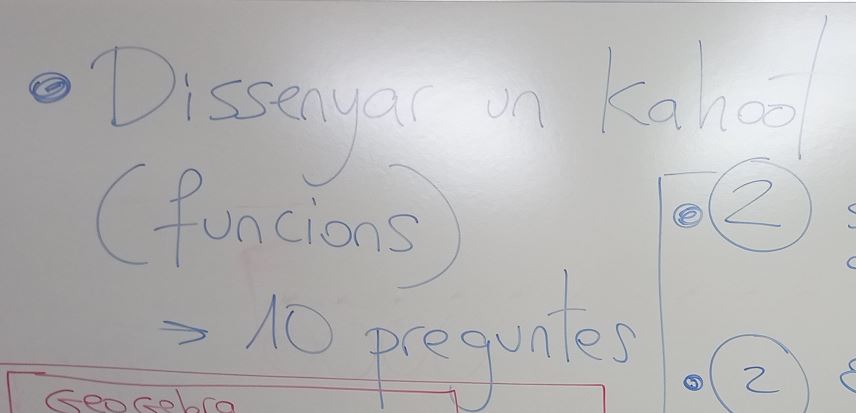 • Dissenyar un Kahoot
(funcions)
→ 10 preguntes
• 2
• 2
GeoGebra